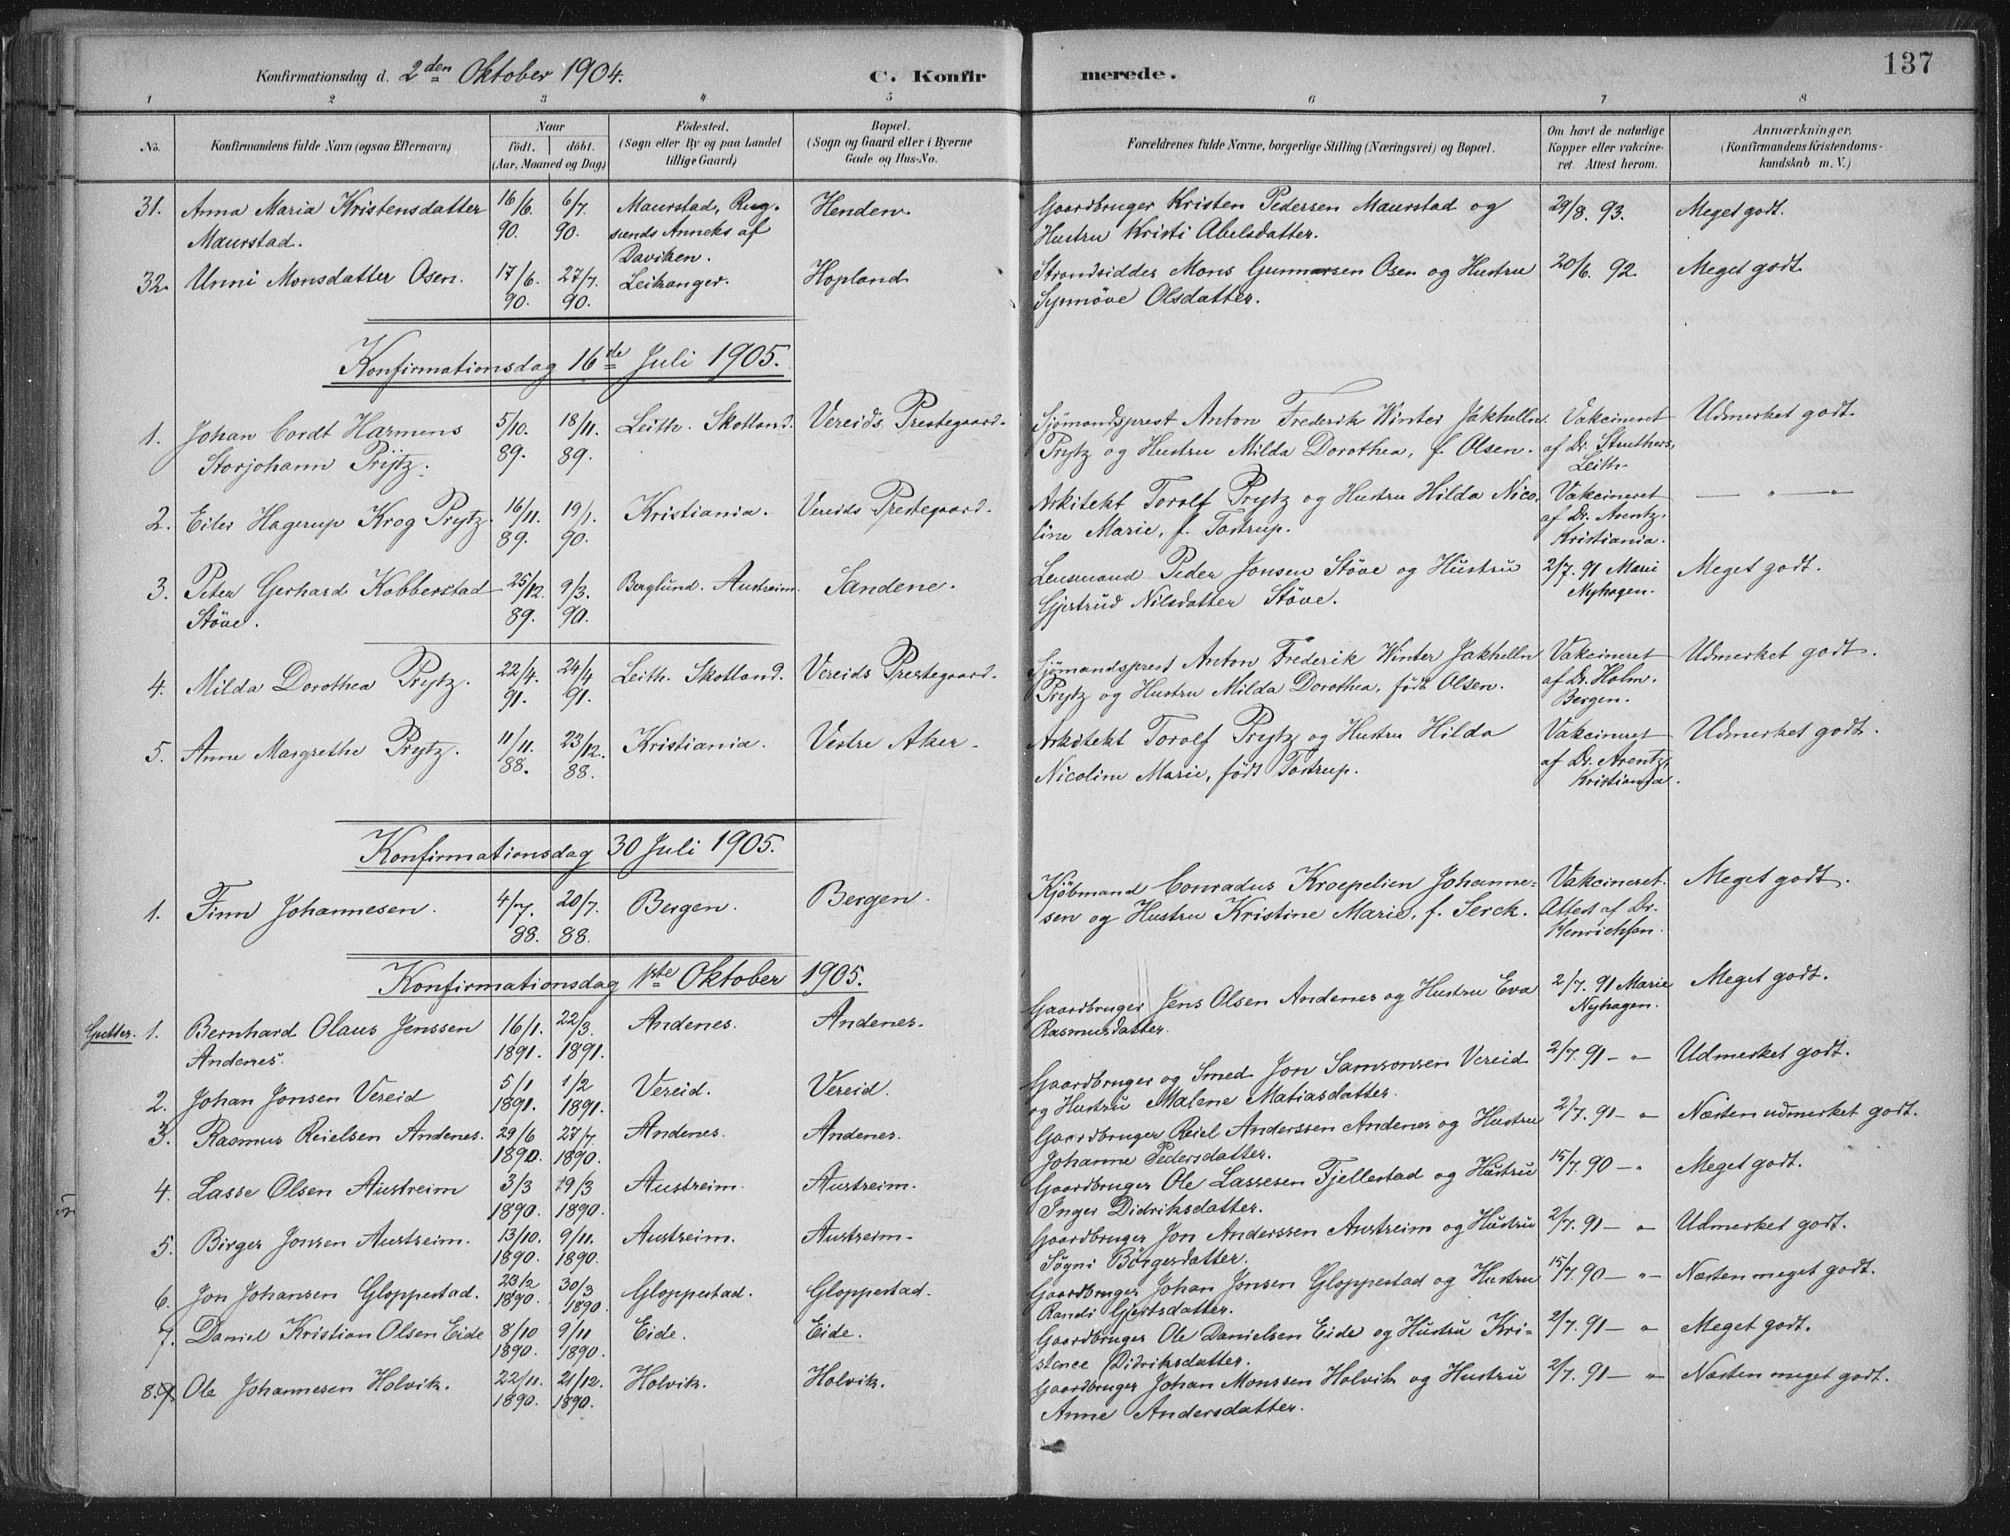 Konfirmationsdag d. 2den Oktober 1904.
C. Konfirmerede.
137
1 2 3 4 5 6 7 8
No. Konfirmandens fulde Navn (ogsaa Efternavn) Naar födt. döbt. (Aar, Maaned og Dag) Födested. (Sogn eller By og paa Landet tillige Gaard) Bopæl. (Sogn og Gaard eller i Byerne Gade og Hus-No. Forældrenes fulde Navne, borgerlige Stilling (Næringsvei) og Bopæl. Om havt de naturlige Kopper eller vakcineret. Attest herom. Anmærkninger. (Konfirmandens Kristendomskundskab m. V.)
31. Anna Maria Kristensdatter 16/6. 6/7. Maurstad, Rug- Henden. Gaardbruger Kristen Pedersen Maurstad og 29/8. 93. Meget godt.
Maurstad. 90. 90. sunds Anneks af Hustru Kristi Abelsdatter.
Daviken.
32. Unni Monsdatter Osen. 17/6. 27/7. Leikanger. Hopland Strandsidder Mons Gunnarsen Osen og Hustru 20/6. 92. Meget godt.
90. 90. Synnöve Olsdatter.
Konfirmationsdag 16de Juli 1905.
1. Johan Cordt Harmens 5/10. 18/11. Leith. Skotland. Vereids Prestegaard. Sjömandsprest Anton Frederik Winter Jakhelln Vakcineret Udmerket godt.
Storjohann Prijtz. 89. 89. Prytz og Hustru Milda Dorothea, f. Olsen. af Dr. Struthers,
Leith.
2. Eiler Hagerup Krog Prytz. 16/11. 19/1. Kristiania. Vereids Prestegaard. Arkitekt Torolf Prytz og Hustru Hilda Nico- Vakcineret — " — "
89. 90. line Marie, f. Tostrup. af Dr. Arentz,
Kristiania.
3. Peter Gerhard Kobberstad 25/12. 9/3. Berglund. Austreim. Sandene. Lensmand Peder Jonsen Stöve og Hustru 2/7. 91 Marie Meget godt.
Stöve. 89. 90. Gjertrud Nilsdatter Stöve. Nyhagen.
4. Milda Dorothea Prytz. 22/4. 24/4 Leith. Skotland. Vereids Prestegaard. Sjömandsprest Anton Frederik Winter Jakhelln Vakcineret Udmerket godt.
91. 91. Prytz og Hustru Milda Dorothea, födt Olsen. af Dr. Holm.
Bergen.
5. Anne Margrethe Prytz. 11/11. 23/12. Kristiania. Vestre Aker. Arkitekt Torolf Prytz og Hustru Hilda Vakcineret Udmerket godt.
88. 88. Nicoline Marie, födt Tostrup. af Dr. Arentz,
Kristiania.
Konfirmationsdag 30 Juli 1905.
1. Finn Johannesen. 4/7. 20/7. Bergen. Bergen. Kjöbmand Conradus Kroepelien Johanne- Vakcineret. Meget godt.
88. 88. sen og Hustru Kristine Marie, f. Serck. Attest af Dr.
Henrichsen.
Konfirmationsdag 1ste Oktober 1905.
Gutter. 1. Bernhard Olaus Jenssen 16/1. 22/3. Andenes. Andenes. Gaardbruger Jens Olsen Andenes og Hustru Eva 2/7. 91 Marie Meget godt.
Andenes. 1891. 1891. Rasmusdatter. Nyhagen.
2. Johan Jonsen Vereid 5/1 1/2 Vereid. Vereid. Gaardbruger og Smed Jon Samsonsen Vereid 2/7. 91 — " Udmerket godt.
1891. 1891. og Hustru Malene Matiasdatter.
3. Rasmus Reielsen Andenes. 29/6 27/7 Andenes. Andenes. Gaardbruger Reiel Anderssen Andenes og Hustru 2/7. 91 — " Næsten udmerket godt.
1890. 1890. Johanne Pedersdatter.
4. Lasse Olsen Austreim 3/3 19/3 Austreim. Austreim. Gaardbruger Ole Lassesen Fjellestad og Hustru 15/7. 90 — " Meget godt.
1890. 1890. Inger Didriksdatter.
5. Birger Jonsen Austreim. 13/10. 9/11. Austreim. Austreim. Gaardbruger Jon Anderssen Austreim og Hustru 2/7. 91 — " Udmerket godt.
1890. 1890. Sögni Börgesdatter.
6. Jon Johansen Gloppestad. 23/2 30/3 Gloppestad. Gloppestad. Gaardbruger Johan Jonsen Gloppestad og Hustru 15/7. 90 — " Næsten meget godt.
1890. 1890. Randi Gjertsdatter.
7. Daniel Kristian Olsen Eide 8/10 9/11 Eide. Eide. Gaardbruger Ole Danielsen Eide og Hustru Kri- 2/7. 91 — " Meget godt.
1890. 1890. stence Didriksdatter.
8. Ole Johannesen Holvik. 22/11. 21/12. Holvik. Holvik. Gaardbruger Johan Monssen Holvik og Hustru 2/7. 91 — " Næsten meget godt.
1890. 1890. Anne Andersdatter.